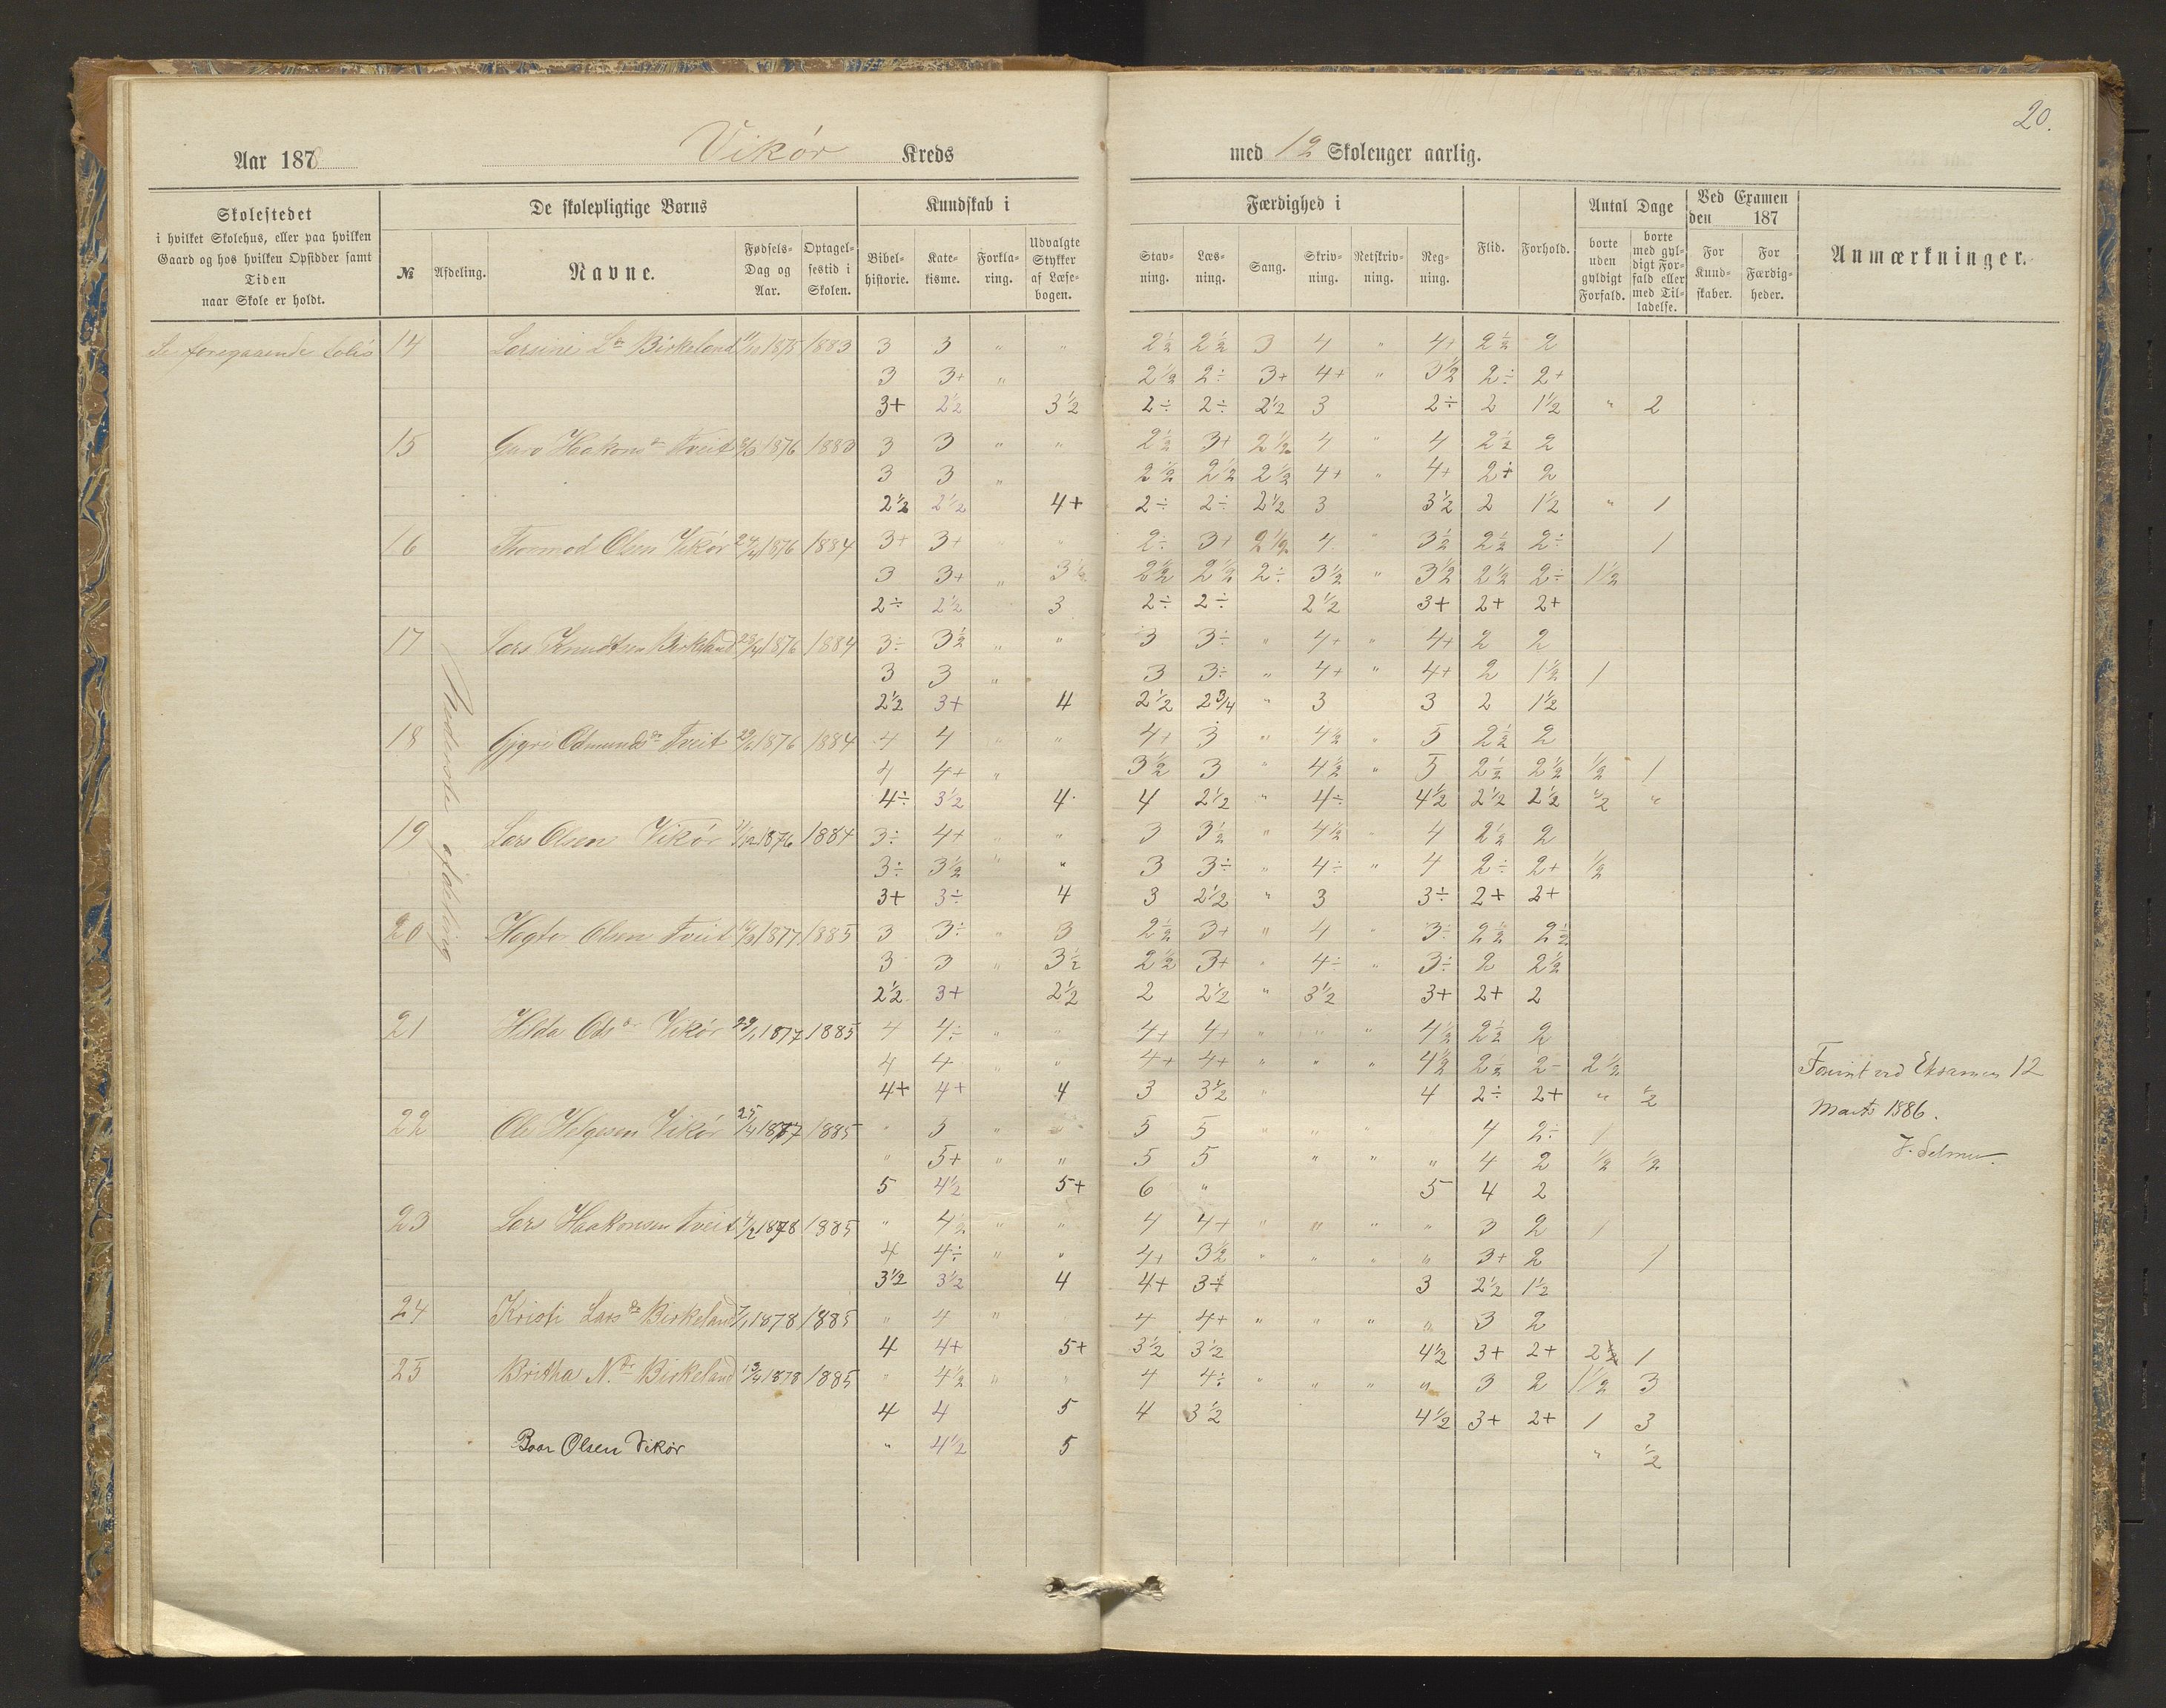 20.
Aar 187 Vikør Kreds med 12 Skolenger aarlig.
Skolestedet i hvilket Skolehus, eller paa hvilken Gaard og hos hvilken Opsidder samt Tiden naar Skole er holdt.
De skolepligtige Børns
№ Afdeling. Navne. Fødsels-Dag og Aar. Optagelsestid i Skolen.
Kundskab i
Bibelhistorie. Katekisme. Forklaring. Udvalgte Stykker af Læsebogen.
Færdighed i
Stavning. Læsning. Sang. Skrivning. Retskrivning. Regning.
Flid. Forhold.
Antal Dage
borte uden gyldigt Forfald. borte med gyldigt Forfald eller med Tilladelse.
Ved Examen den 187
For Kundskaber. For Færdigheder.
Anmærkninger.
Se foregaaende folio
Nederste afdeling
14 Larsine L.dr Birkeland 1875 1883 3 3 " " 2½ 2½ 3 4 " 4+ 2½ 2
3 3+ " 2½ 2÷ 3+ 4+ " 3½ 2÷ 2+
3+ 2½ 3½ 2÷ 2÷ 2½ 3 2÷ 2 1½ " 2
15 Guro Haakonsdr Tveit 8/3 1876 1883 3 3 " " 2½ 3+ 2½ 4 " 4 2½ 2
3 3 " 2½ 2½ 2½ 4+ " 4+ 2÷ 2
2½ 2½ 4+ 2÷ 2÷ 2½ 3 3½ 2 1½ " 1
16 Thormod Olsen Vikør 24/4 1876 1884 3+ 3+ " " 2÷ 3+ 2½ 4 " 3½ 2½ 2÷ 1
3 3+ " 3½ 2½ 2½ 2÷ 3½ " 3½ 2½ 2÷ 1½
2÷ 2½ 3 2÷ 2÷ 2½ 3+ 2+ 2+
17 Lars Knudtsen Birkeland 1876 1884 3÷ 3½ " " 3 3÷ " 4+ " 4+ 2 2
3 3 " 3 3÷ " 4+ " 4+ 2 1½ 1
2½ 3+ 4 2½ 2¾ " 3 3 2 1½
18 Gjyri Odmundsdr Tveit 29/6 1876 1884 4 4 " " 4+ 3 " 4½ " 5 2½ 2
4 4+ " 3½ 3 " 4½ " 5 2½ 2½ ½ 1
4÷ 3½ 4 4 2½ " 4÷ 4½ 2½ 2½ ½ "
19 Lars Olsen Vikør 1876 1884 3÷ 4+ " " 3 3½ " 4½ " 4 2½ 2
3÷ 3½ " " 3 3÷ " 4÷ " 4 2÷ 2+ ½
3+ 3÷ 4 3 2½ " 3 3÷ 2+ 2+
20 Hegto Olsen Tveit 1877 1885 3 3÷ " 3 2½ 3+ " 4 " 3÷ 2½ 2½
3 3 " 3½ 2½ 3+ " 4÷ " 3÷ 2 2½
2½ 3+ 2½ 2 2½ " 3½ 3+ 2+ 2
21 Hilda Ods dr Vikør 29/1 1877 1885 4 4÷ " " 4+ 4+ " " " 4½ 2½ 2
4 4 " 4+ 4+ " " " 4½ 2½ 2÷ 2½
4+ 4+ 4 3 3½ " 4 2÷ 2+ " ½
Forevist ved Eksamen 12
Marts 1886.
J. Selmer.
22 Ole Helgesen Vikør 25/4 1877 1885 " 5 " 5 5 " " " 4 2÷ 1
" 5+ " " 5 5 " " " 4 2 ½ ½
5 4½ 5+ 6 " 5 4 2
23 Lars Haakonsen Tveit 1878 1885 " 4½ " " 4 4+ " " " " 3 2 1
4 4÷ " " 4+ 3½ " " " " 3+ 2 1
3½ 3½ 4 4+ 3÷ 3 2½ 1½
24 Kristi Larsdr Birkeland 7/1 1878 1885 " 4 " 4 4+ " " " " 3 2
4 4+ 5+ 3½ 3½ 4½ 3+ 2+ 2½ 1
25 Britha N.dr Birkeland 13/4 1878 1885 " 4½ " " 4 4÷ " " " " 3 2 1½ 3
4 4 5 4 3½ 4½ 3+ 2+ 1 3
Baar Olsen Vikør " 4½ 5 " ½